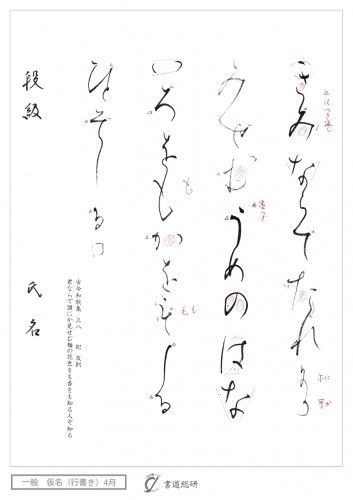 きみならてたれ尓可
みせむうめのはな
いろをもかを毛しる
ひとそしる
古今和歌集 三八 紀 友則
君ならで誰にか見せむ梅の花色をも香をも知る人ぞ知る
段級 氏名
一般 仮名（行書き）4月
書道総研